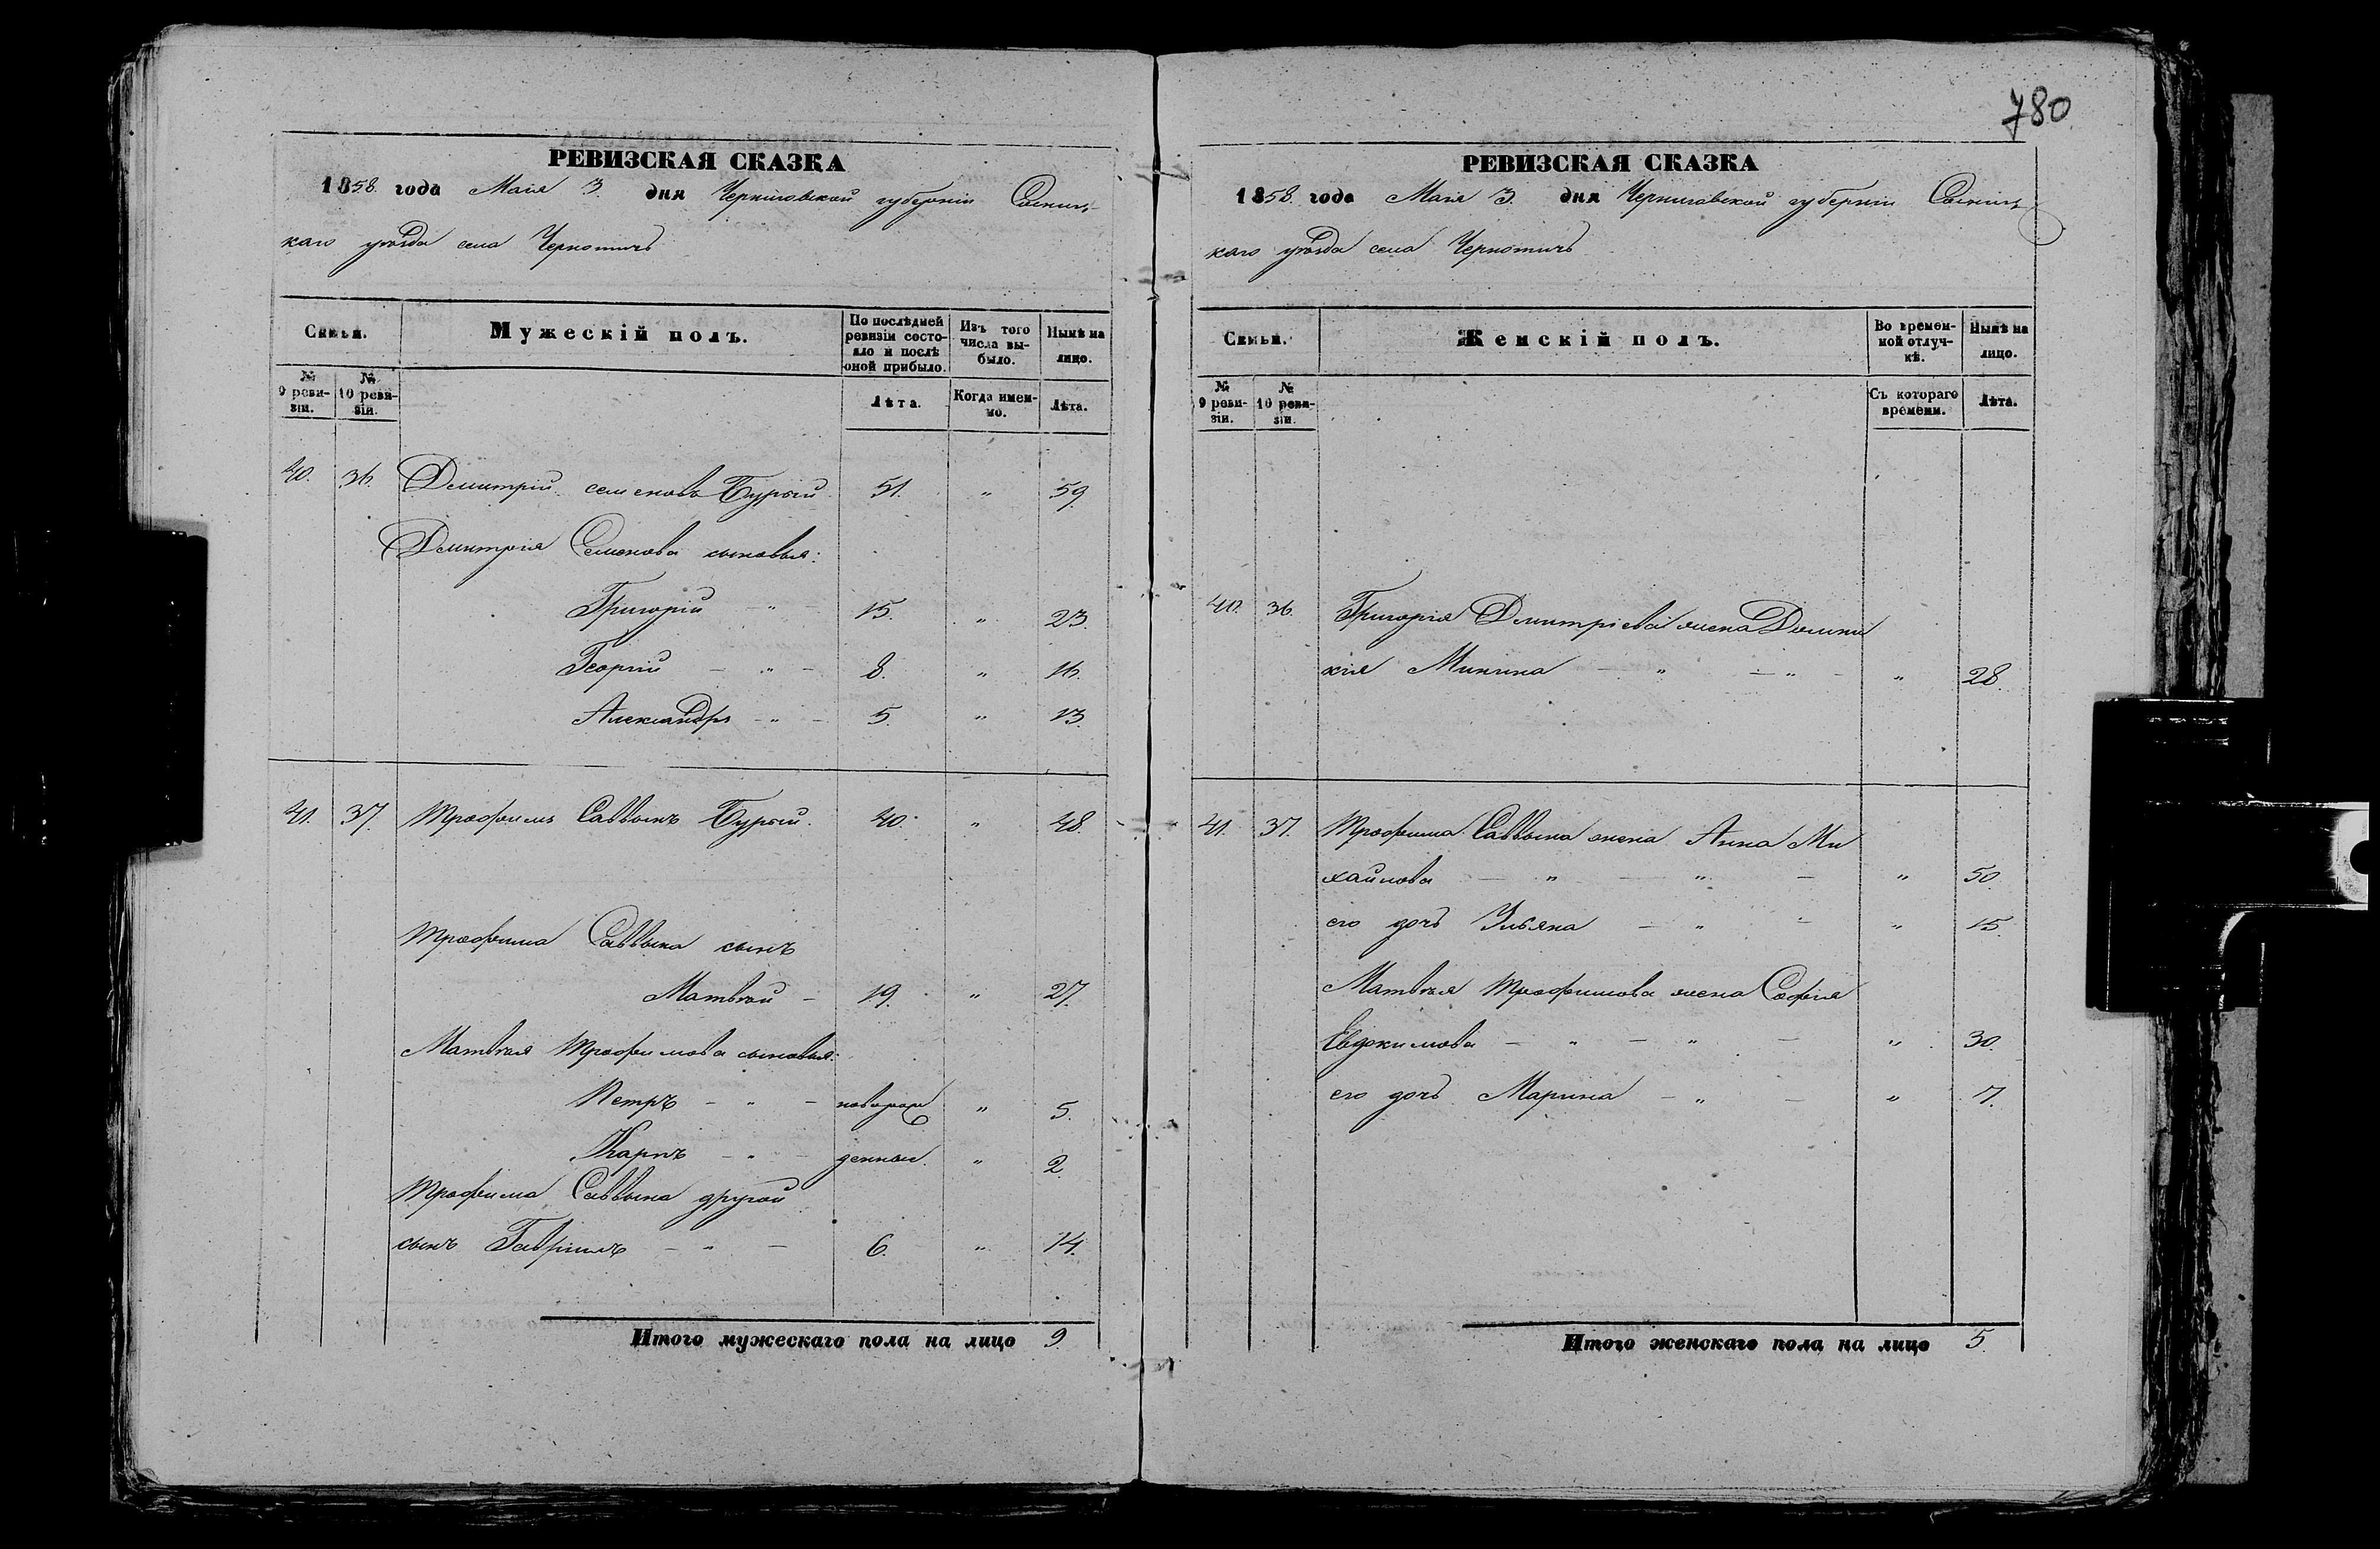 РЕВИЗСКАЯ СКАЗКА
1858. года Маія 3. дня Черниговской губерніи Сосниц
каго уѣзда села Чернотичъ
Семьи.
Мужескій полъ.
По послѣдней ревизіи состо-
яло и послѣ
оной прибыло.
Изъ того
числа вы-
было.
Нынѣ на
лицо.
№
9 реви-
зіи.
№
10 реви-
зіи.
Лѣта.
Когда имен-
но.
Лѣта.
40. 36. Демитрій семеновъ Бурый 51. " 59.
Демитрія Семенова сыновья:
Григорій - " - 15. " 23.
Георгій - " - 8. " 16.
Александръ - " - 5. " 13.
41. 37. Трофимъ Саввинъ Бурый. 40. " 48.
Трофима Саввина сынъ
Матвѣй - 19. " 27.
Матвѣя Трофимова сыновья:
Петръ - " - новорож " 5.
Карпъ - " - денные. " 2.
Трофима Саввина другой
сынъ Гавріилъ - " - 6. " 14.
Итого мужескаго пола на лицо 9.
780
РЕВИЗСКАЯ СКАЗКА
1858. года Маія 3. дня Черниговской губерніи Сосниц
каго уѣзда села Чернотичъ
Семьи.
Женскій полъ.
Во времен-
ной отлуч-
кѣ.
Нынѣ на
лицо.
№
9 реви-
зіи.
№
10 реви-
зіи.
Съ котораго
времени.
Лѣта.
40. 36. Григорія Дмитріева жена Домни
кія Минина - " - " - " 28.
41. 37. Трофима Саввина жена Анна Ми
хайлова - " - " - " 50.
его дочь Ульяна - " - " 15.
Матвѣя Трофимова жена Софія
Евдокимова - " - " - " 30.
его дочь Марина - " - " 7.
Итого женскаго пола на лицо 5.